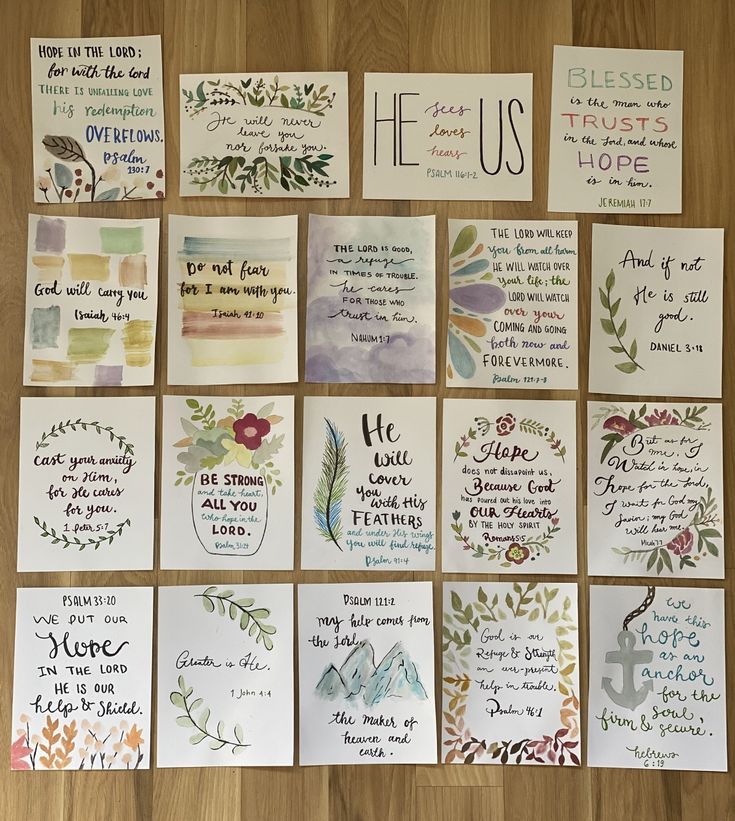 HOPE IN THE LORD;
for with the Lord
THERE IS UNFAILING LOVE
his redemption
OVERFLOWS.
psalm
130:7
He will never
leave you
nor forsake you.
HE sees US
loves
hears
PSALM 116:1-2
BLESSED
is the man who
TRUSTS
in the Lord, and whose
HOPE
is in him.
JEREMIAH 17:7
God will carry you
Isaiah 46:4
Do not fear
for I am with you.
Isaiah 41:10
THE LORD IS GOOD,
a refuge
IN TIMES OF TROUBLE.
he cares
FOR THOSE WHO
trust in him.
NAHUM 1:7
THE LORD WILL KEEP
you from all harm
HE WILL WATCH OVER
your life; the
LORD WILL WATCH
over your
COMING AND GOING
both now and
FOREVERMORE.
Psalm 121:7-8
And if not
He is still
good.
DANIEL 3:18
Cast your anxiety
on Him,
for He cares
for you.
1 Peter 5:7
BE STRONG
and take heart,
ALL YOU
who hope in the
LORD.
Psalm 31:24
He
will
cover
you
with His
FEATHERS
and under His wings
you will find refuge
Psalm 91:4
Hope
does not dissapoint us,
Because God
has poured out his love into
our Hearts
BY THE HOLY SPIRIT
Romans 5:5
But as for
me, I
Watch in hope, in
hope for the Lord,
I wait for God my
Savior; my God
Will hear me.
Micah 7:7
PSALM 33:20
WE PUT OUR
Hope
IN THE LORD
HE IS OUR
help & Shield.
Greater is He.
1 John 4:4
PSALM 121:2
my help comes from
the Lord,
the maker of
heaven and
earth.
God is our
Refuge & Strength
an ever-present
help in trouble.
Psalm 46:1
we
have this
hope
as an
anchor
for the
soul,
firm & secure.
hebrews
6:19